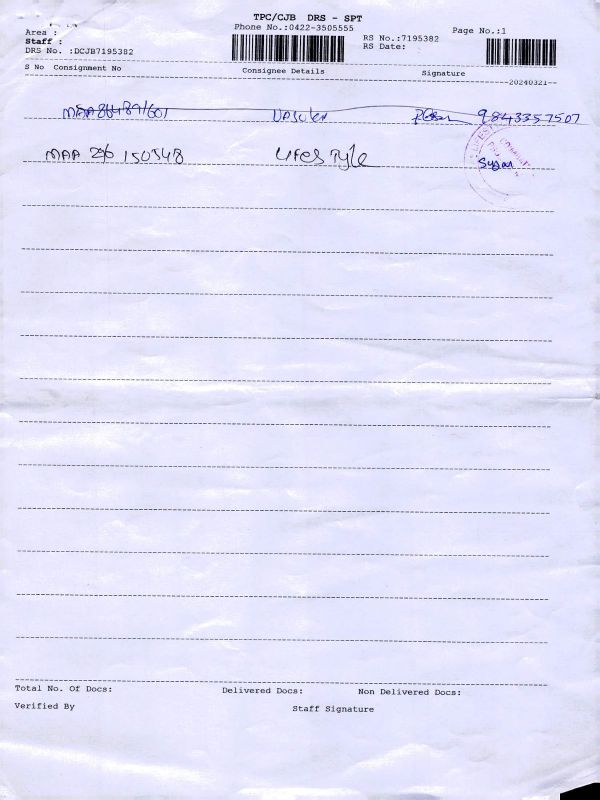 TPC/CJB DRS - SPT
Phone No.:0422-3505555
Area :
Staff :
DRS No. :DCJB7195382
RS No.:7195382
RS Date:
Page No.:1
S No Consignment No Consignee Details Signature
20240321
9843357507
MAA 296 150548 LifeStyle
Total No. Of Docs: Delivered Docs: Non Delivered Docs:
Verified By Staff Signature